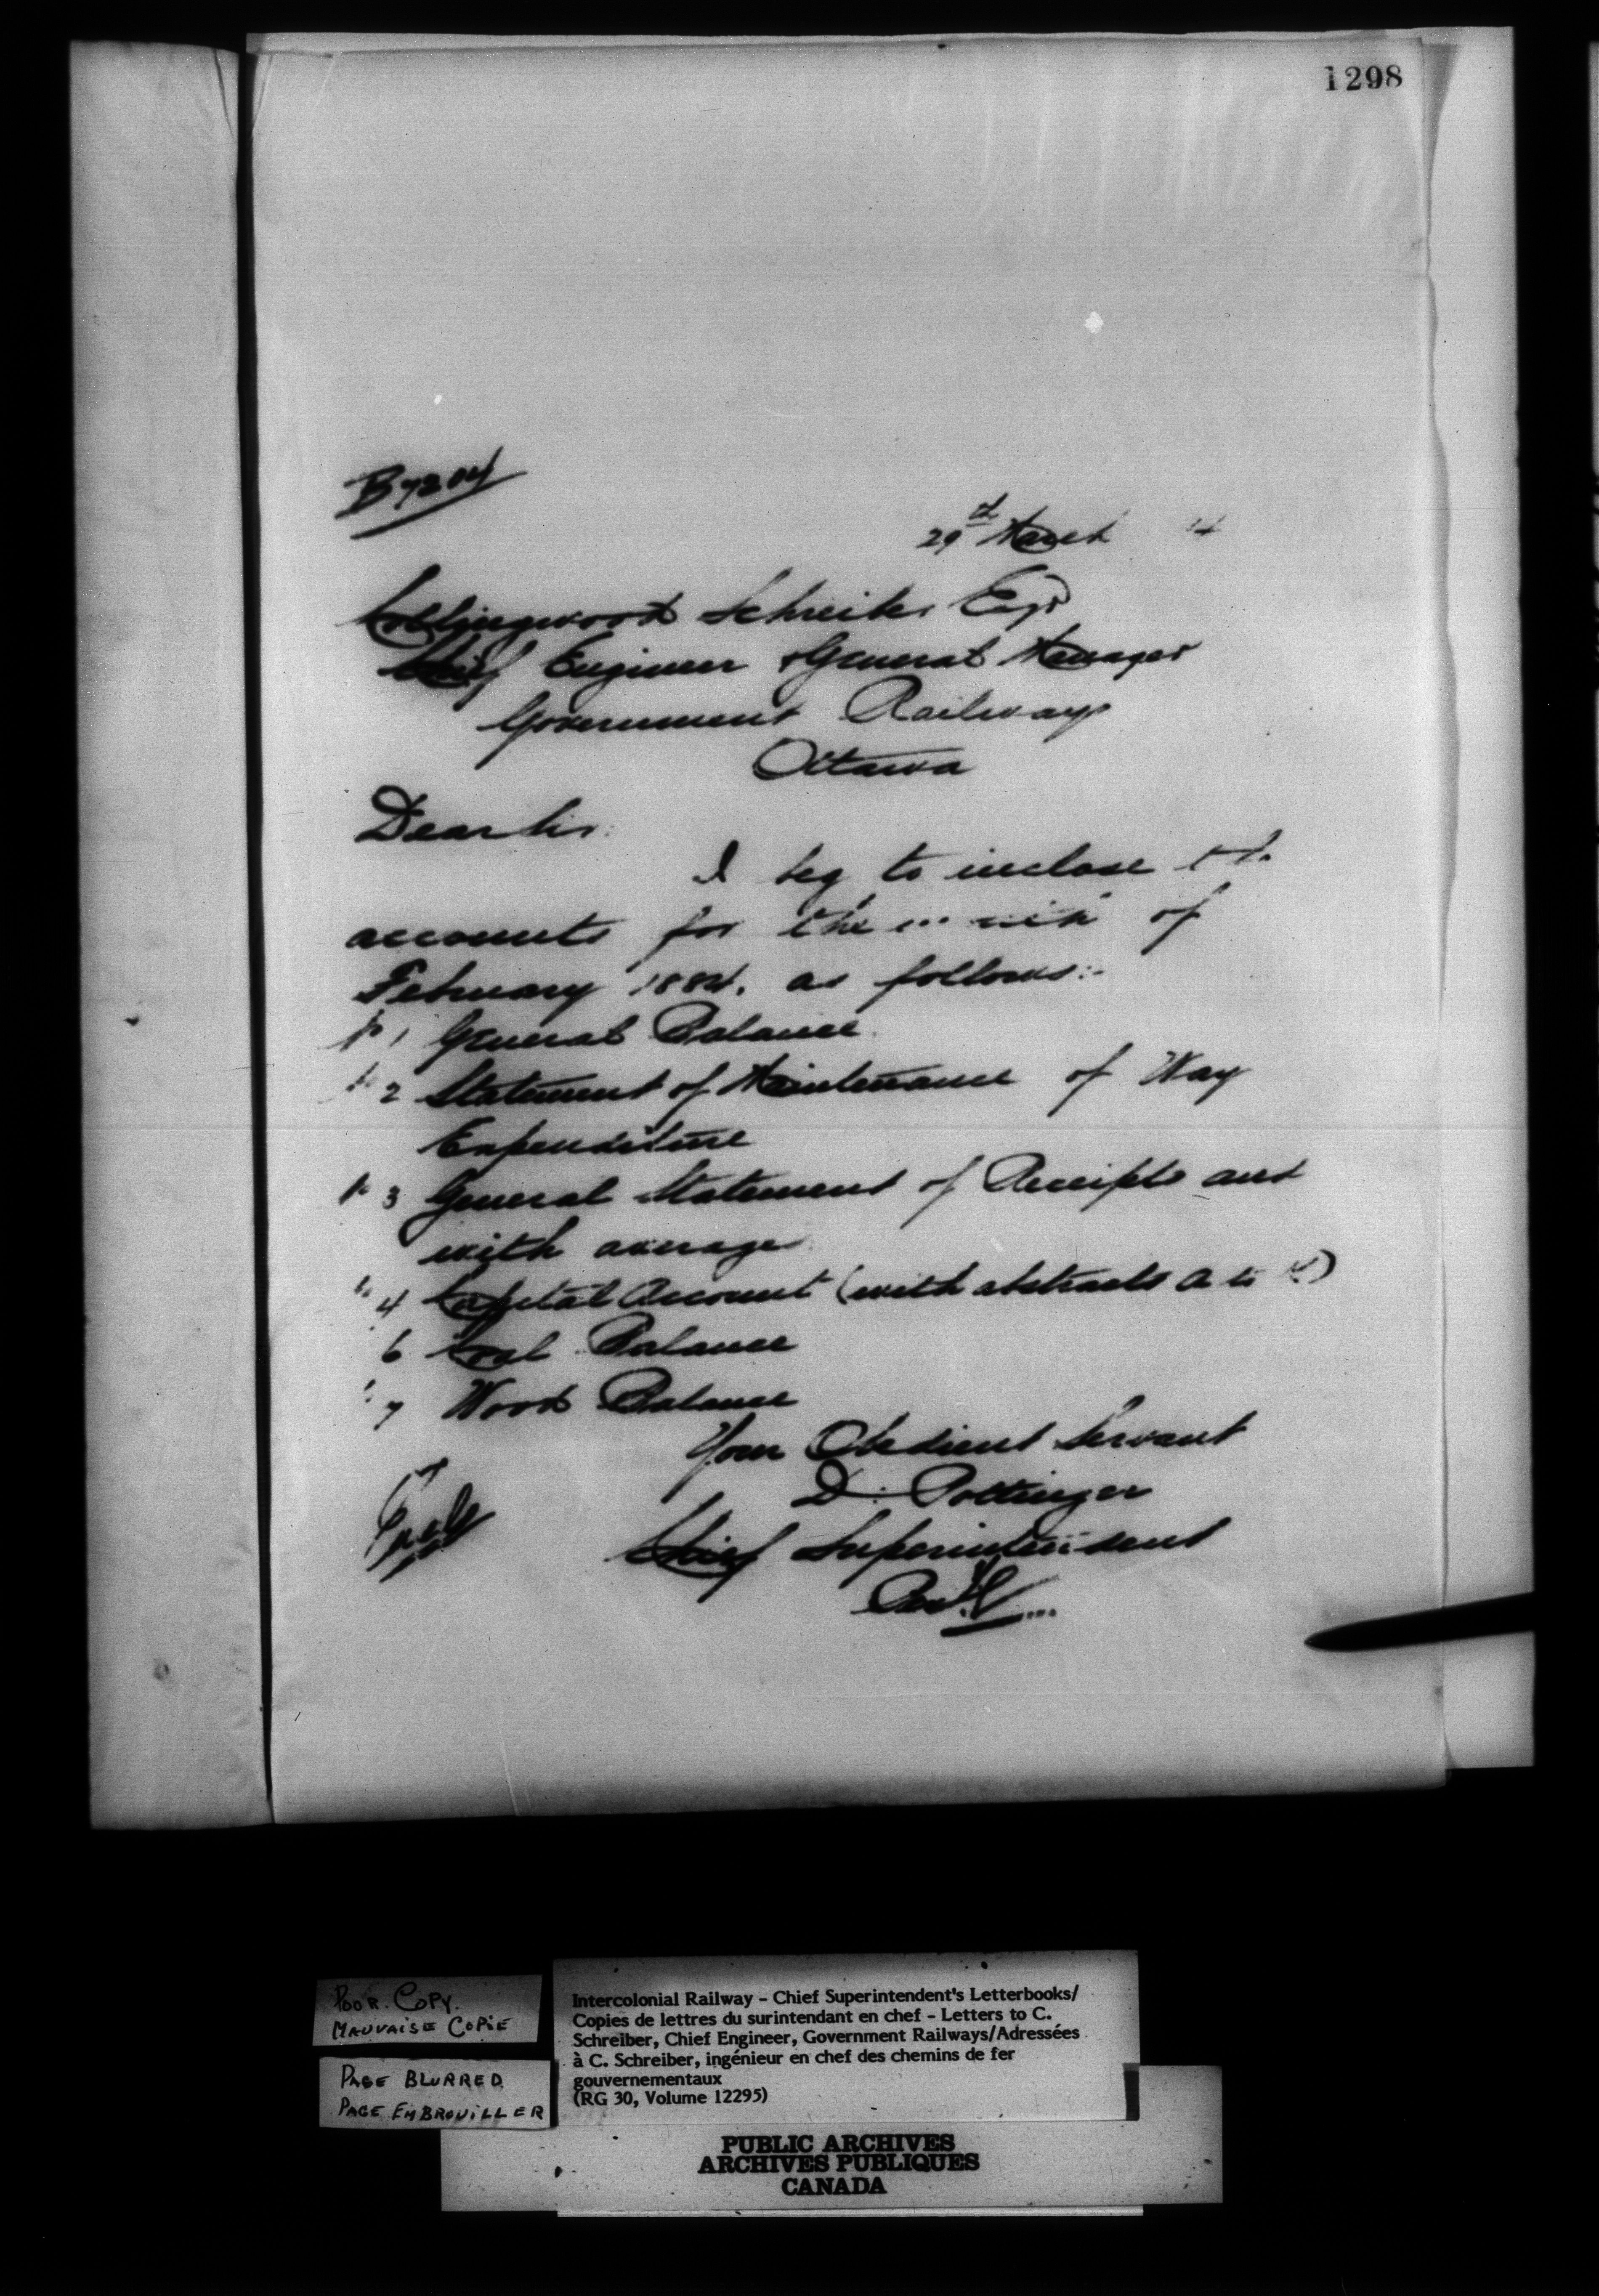 1298
B 7204
29th March
Collingwood Schreiber Esqr
Chief Engineer & General Manager
Government Railways
Ottawa
Dear Sir:
I beg to inclose
accounts for the of
February 1884. as follows:-
No 1 General Balance
No 2 Statement of Maintenance of Way
Expenditure
No 3 General Statement of Receipts and
with averages
" 4 Capital Account (with abstracts A to )
6 Coal Balance
" 7 Wood Balance
Your Obedient Servant
D. Pottinger
Chief Superintendent
Per
POOR COPY.
MAUVAISE COPIE
PAGE BLURRED
PAGE EMBROUILLER
Intercolonial Railway - Chief Superintendent's Letterbooks/
Copies de lettres du surintendant en chef - Letters to C.
Schreiber, Chief Engineer, Government Railways/Adressées
à C. Schreiber, ingénieur en chef des chemins de fer
gouvernementaux
(RG 30, Volume 12295)
PUBLIC ARCHIVES
ARCHIVES PUBLIQUES
CANADA